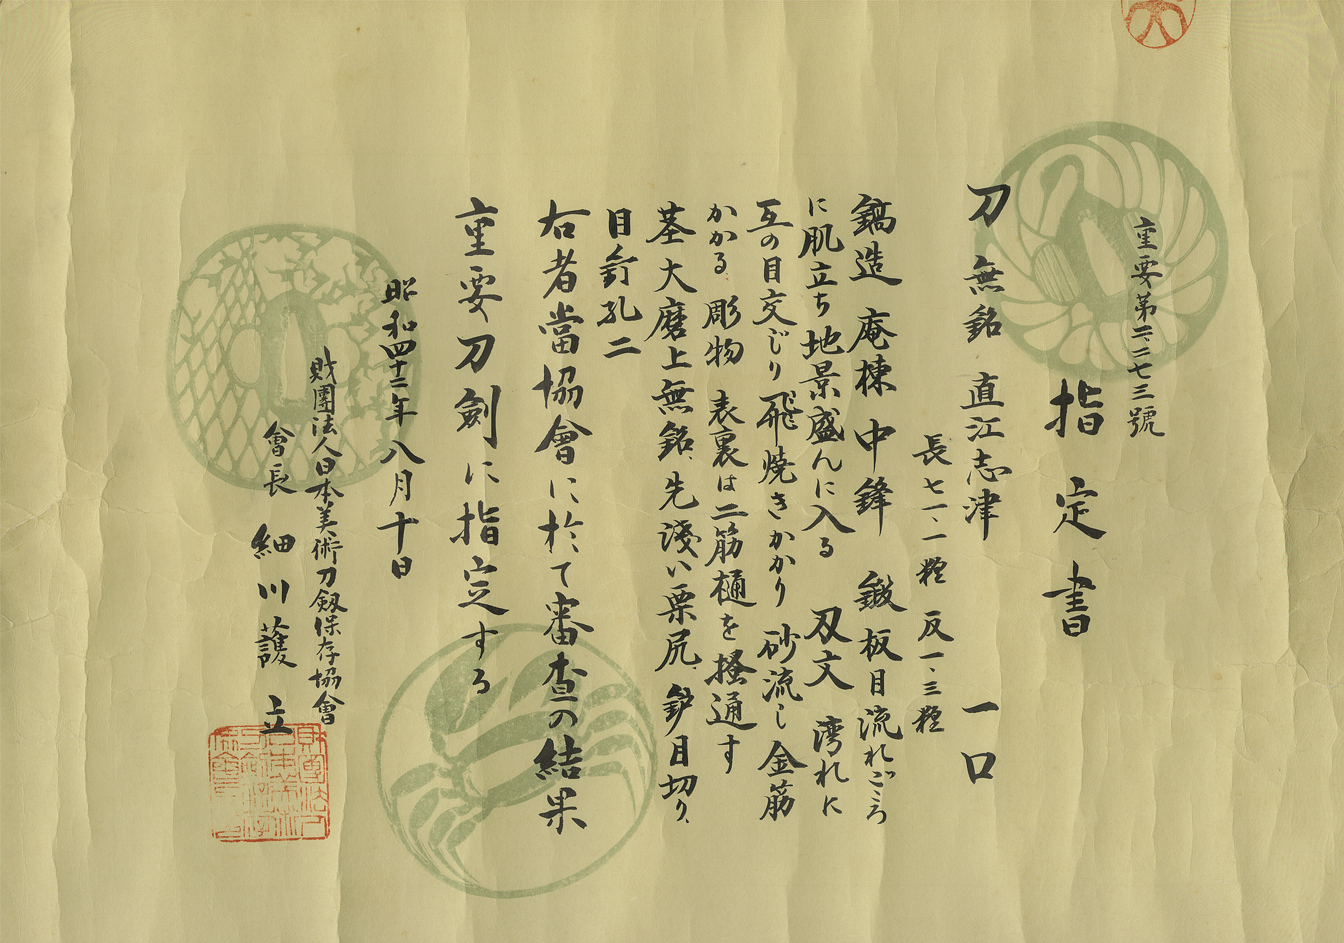 重要第二、二七三號
指定書
刀 無銘 直江志津 一口
長七一、一糎 反一、三糎
鎬造 庵棟 中鋒 鍛板目流れごころ
に肌立ち地景盛んに入る 刃文 湾れに
互の目交じり 飛焼きかかり 砂流し 金筋
かかる、彫物 表裏は二筋樋を掻通す
茎 大磨上無銘、先浅い栗尻、鑢目切り、
目釘孔二
右者當協會に於て審査の結果
重要刀劍に指定する
昭和四十二年八月十日
財團法人日本美術刀劔保存協會
會長 細川護立